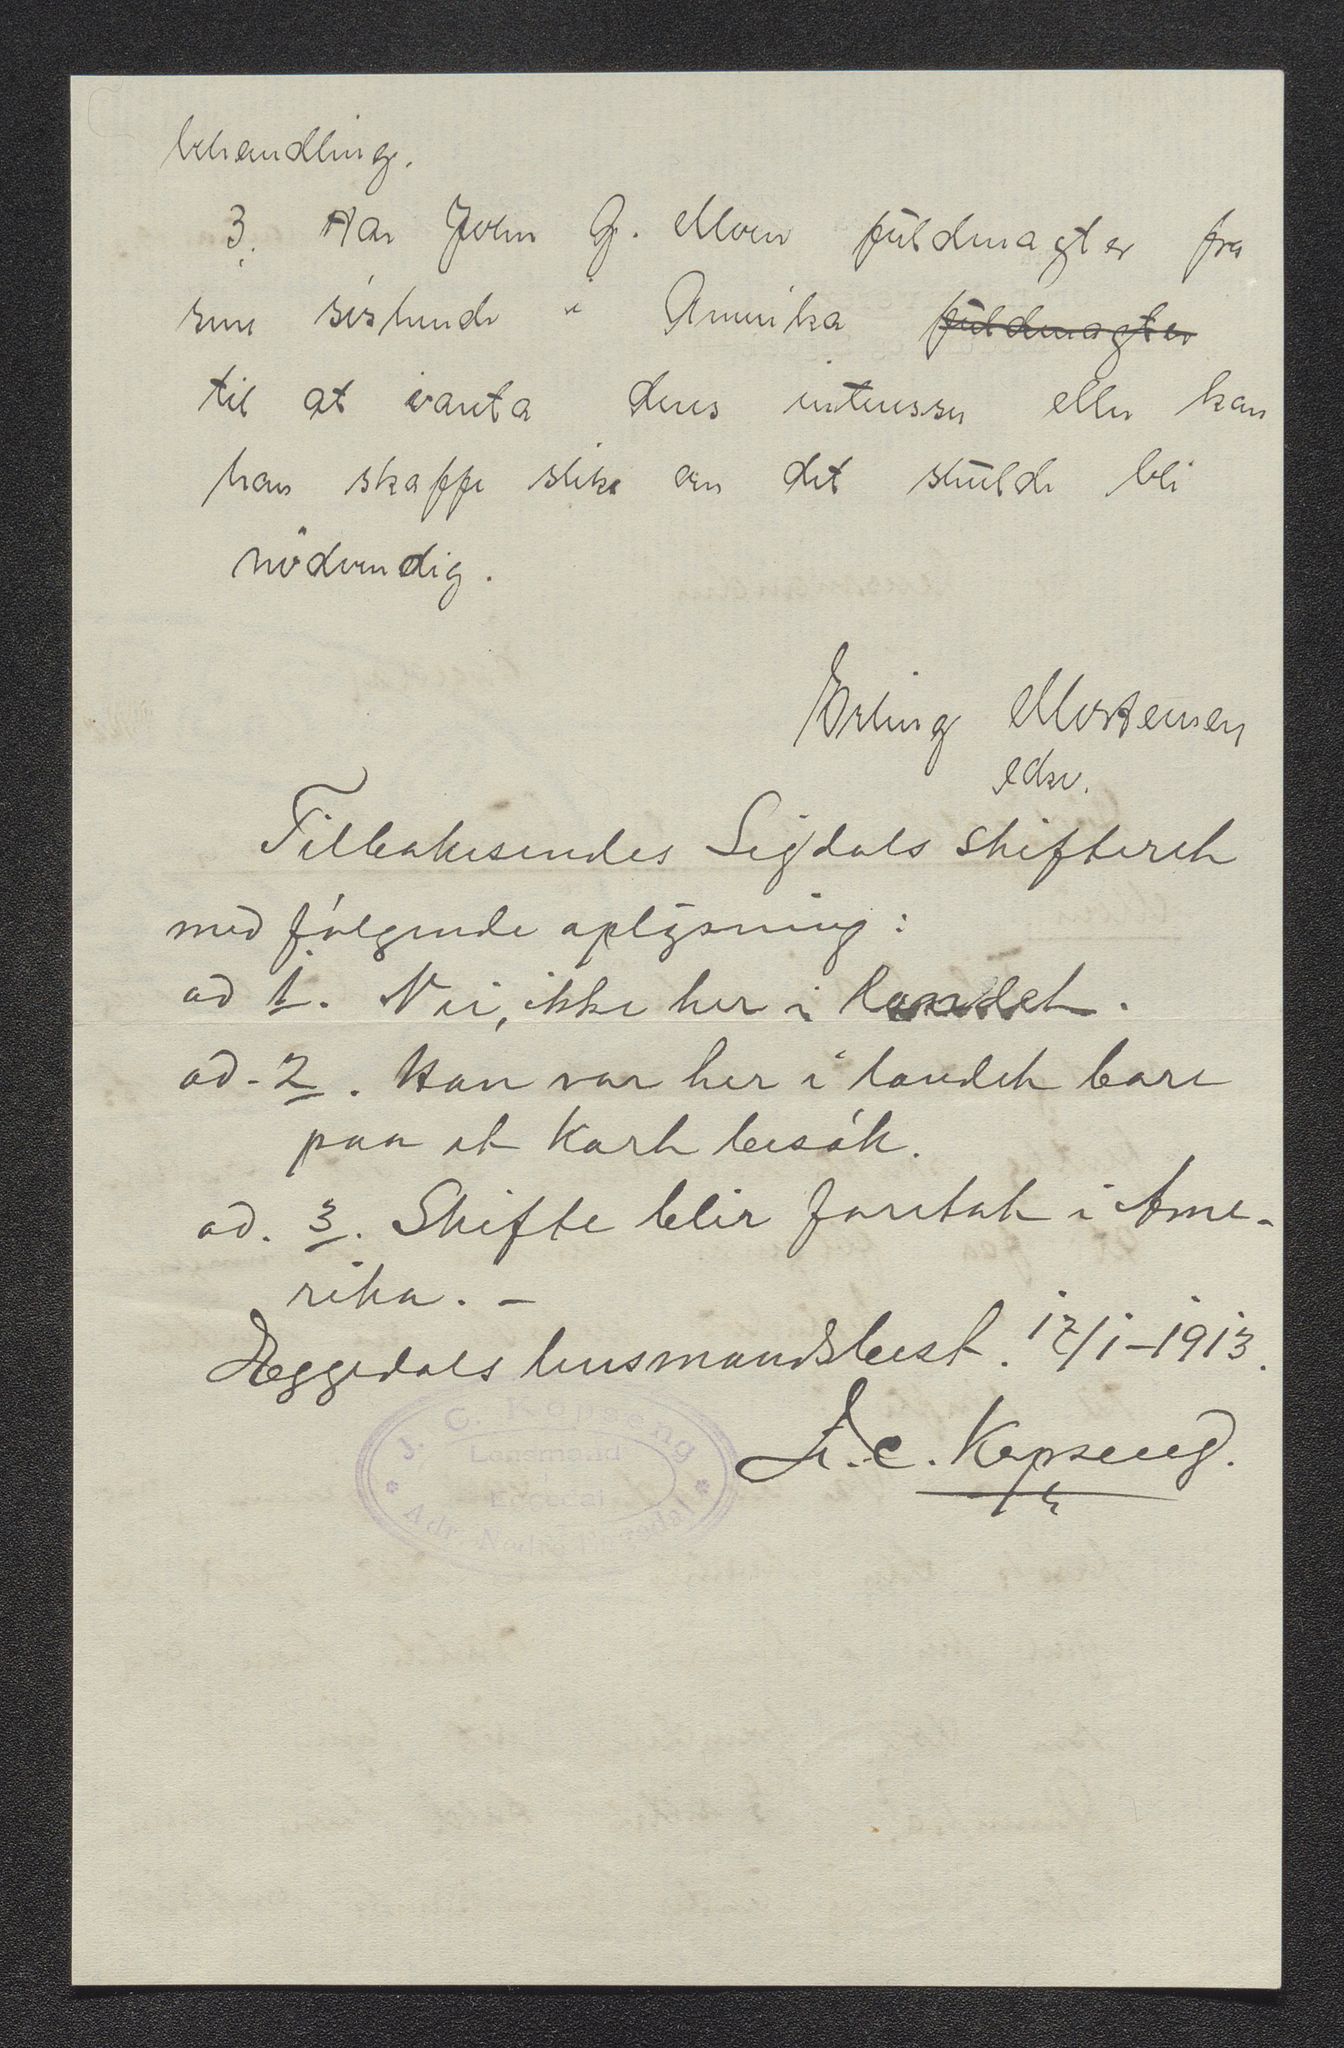 behandling.
3. Har John G. Moen fuldmagter fra
sine söskende i Amerika fuldmagter
til at ivareta deres interesser eller kan
han skaffe slike om det skulde bli
nödvendig.
Erling Mortensen
edsv.
Tilbakesendes Sigdals skifteret
med følgende oplysning:
ad 1. Nei, ikke her i landet.
ad. 2. Han var her i landet bare
paa et kort besøk.
ad. 3. Skifte blir foretat i Ame-
rika. –
Eggedals lensmandsbest. 17/1–1913.
J. C. Kopseng.
J. C. Kopseng
Lensmand
i
Eggedal
Adr. Nedre Eggedal